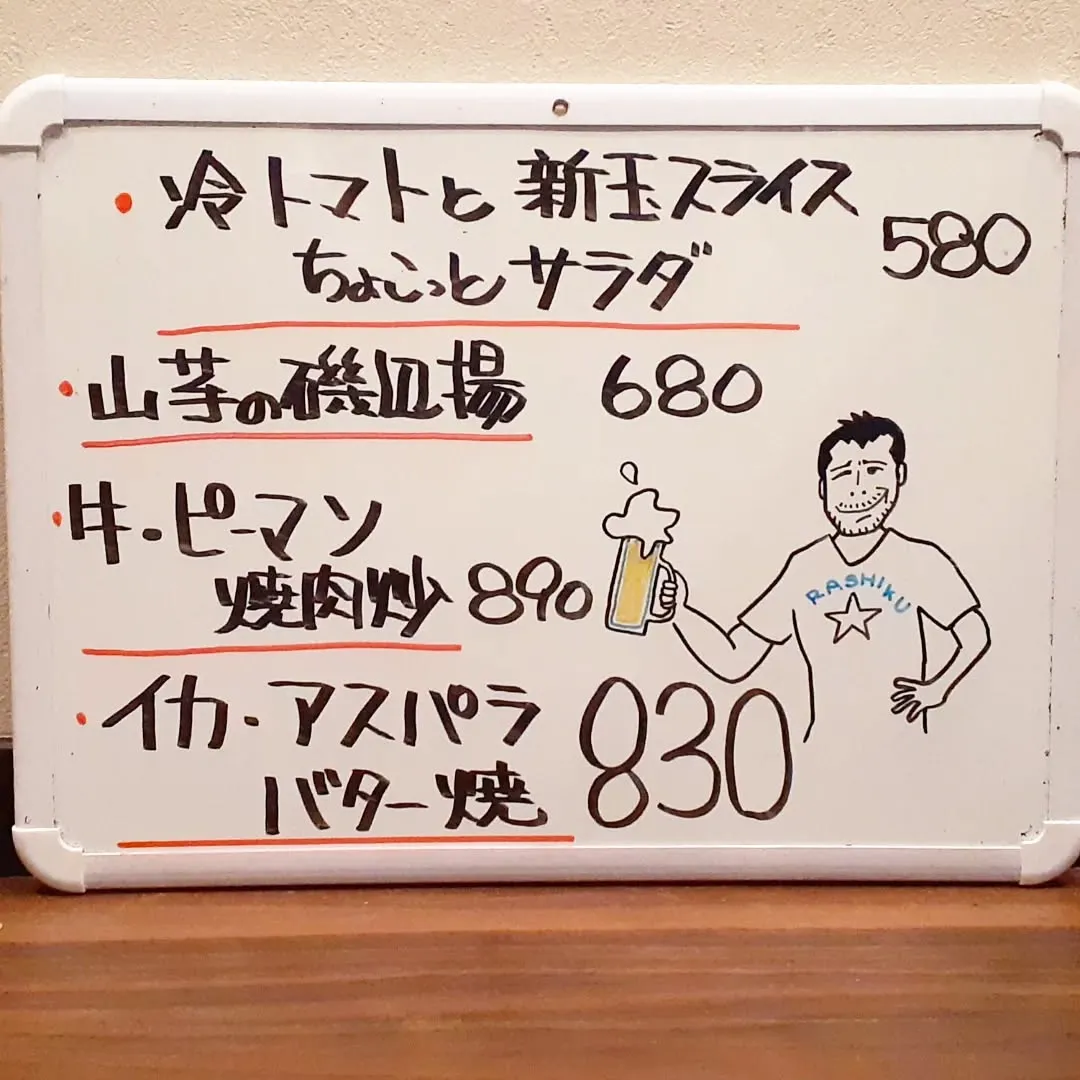 ・冷トマトと新玉スライス
ちょこっとサラダ 580
・山芋の磯辺揚 680
・牛・ピーマン
焼肉炒 890
・イカ・アスパラ
バター焼 830
RASHIKU